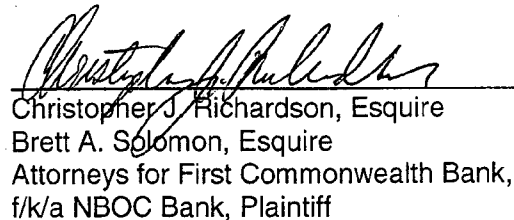 Christopher J. Richardson
Christopher J. Richardson, Esquire
Brett A. Solomon, Esquire
Attorneys for First Commonwealth Bank,
f/k/a NBOC Bank, Plaintiff